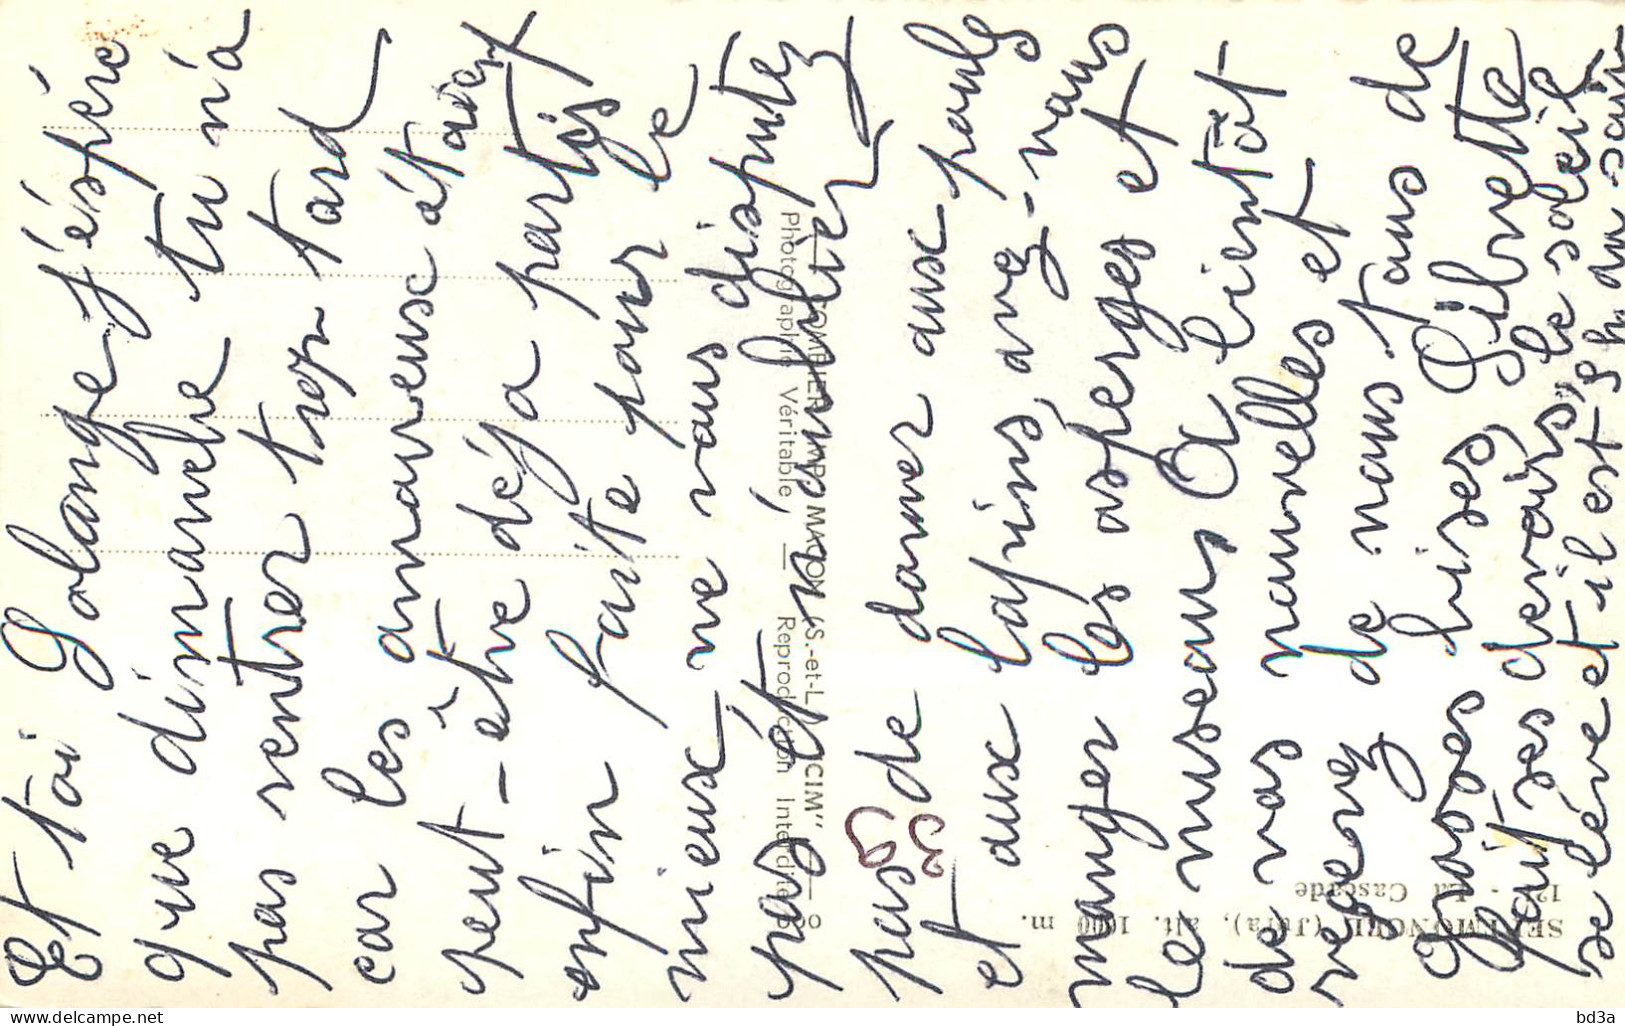 Et toi Solange j'éspére
que dimanche tu n'a
pas rentrer trop tard
car les amoureux étaient
peut-être déja partis
enfin faite pour le
mieux ne vous disputez
pas et n'oublier
pas de donner aux pouls
et aux lapins, avez-vous
manger les asperges et
le museaus A bientôt
de vos nouvelles et
reçevez de nous tous de
Groses bises, Silvette
fait ses devoirs, le soleil
se léve et il est 8 h du soir
SEPTMONCEL (Jura), alt. 1000 m.
12 - La Cascade
COMBIER IMP. MACON (S.-et-L.) "CIM"
Photographie Véritable — Reproduction Interdite
93
bd3a
delcampe.net